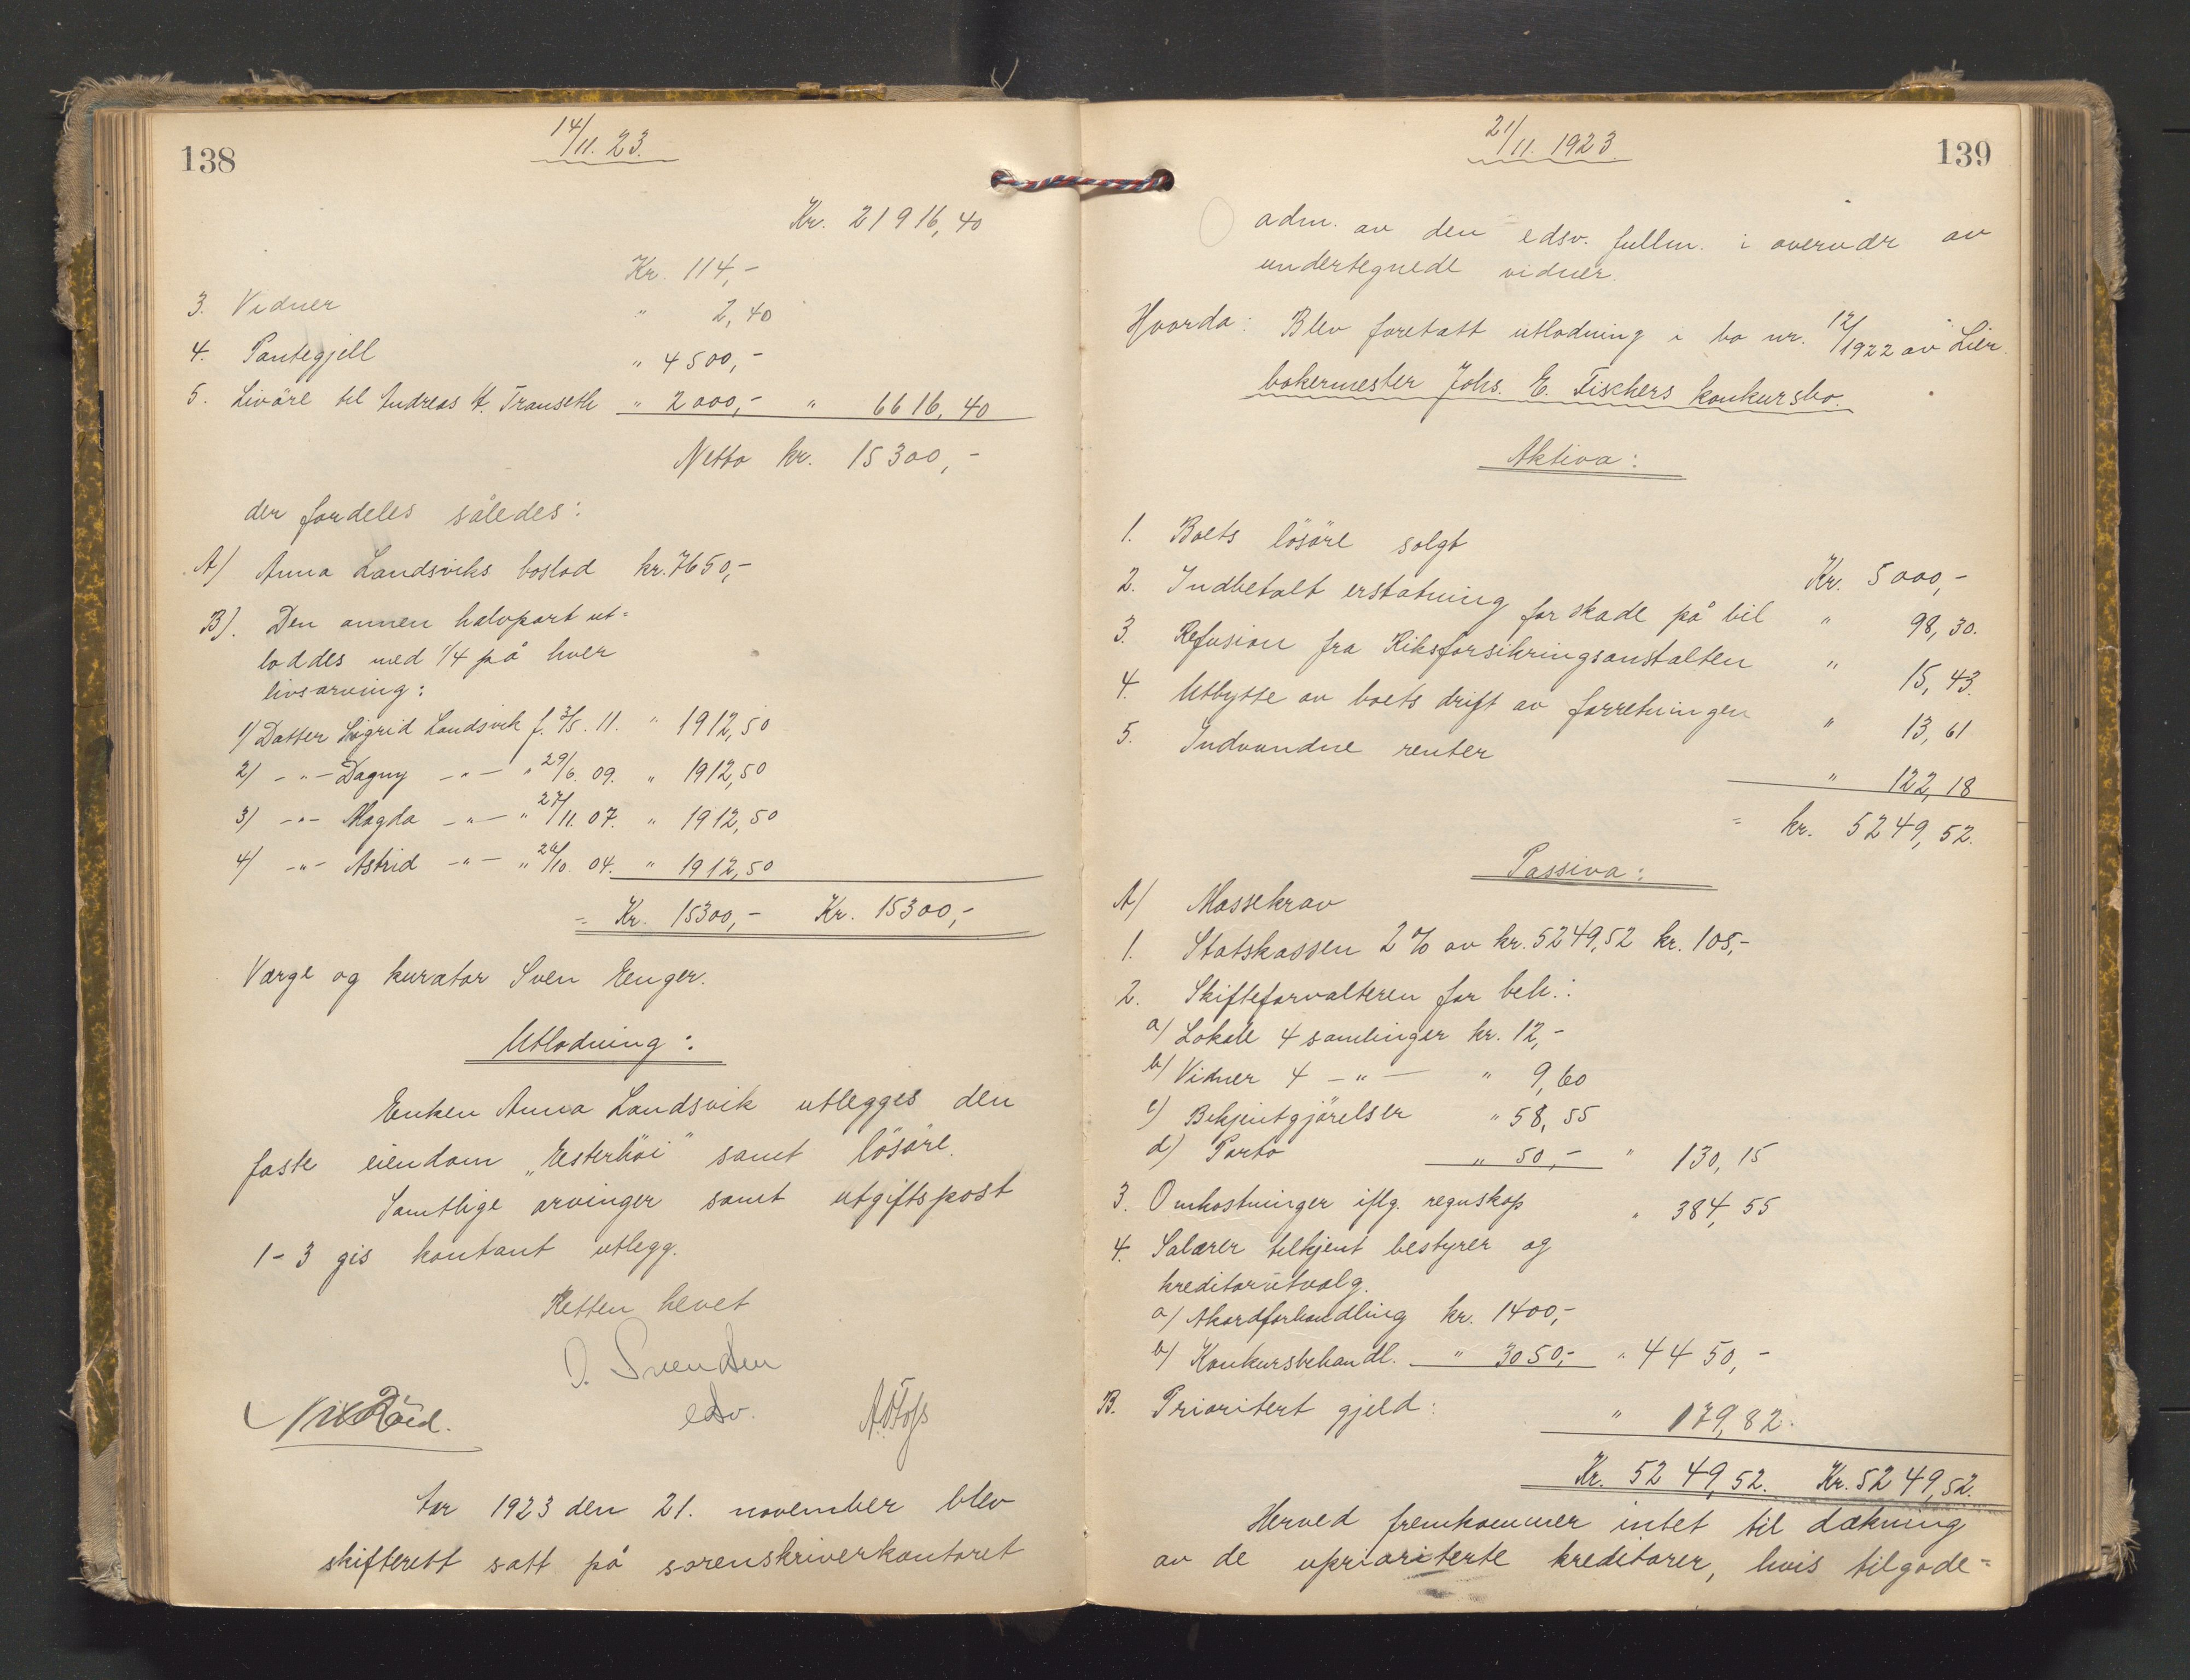 138
14/11. 23.
Kr. 21916,40
Kr. 114,-
3. Vidner " 2,40
4. Pantegjell " 4500,-
5. Livöre til Andreas H. Transeth " 2000,- " 6616,40
Netto kr. 15300,-
der fordeles således:
A/ Anna Landsviks boslod kr. 7650,-
B). Den annen halvpart ut-
loddes med 1/4 på hver
livsarving:
1/ Datter Sigrid Landsvik f. 3/5. 11. " 1912,50
2/ -"- Dagny -"- " 29/6. 09. " 1912,50
3/ -"- Magda -"- " 27/11. 07. " 1912,50
4/ -"- Astrid -"- " 26/10. 04. " 1912,50
= Kr. 15300,- Kr. 15300,-
Verge og kurator Sven Enger.
Utlodning:
Enken Anna Landsvik utlegges den
faste eiendom „Vesterhöi" samt lösöre.
Samtlige arvinger samt utgiftspost
1-3 gis kontant utlegg.
Retten hevet
O. Svendsen
edsv.
Nils Röed.
År 1923 den 21. november blev
skifterett satt på sorenskriverkontoret
21/11. 1923
139
adm. av den edsv. fullm. i overvær av
undertegnede vidner.
Hvorda: Blev foretatt utlodning i bo nr. 12/1922 av Lier
bakermester Johs. E. Fischers konkursbo.
Aktiva:
1. Boets lösöre solgt Kr. 5000,-
2. Indbetalt erstatning for skade på bil " 98,30.
3. Refusion fra Riksforsikringsanstalten " 15,43.
4. Utbytte av boets drift av forretningen " 13,61
5. Indvundne renter " 122,18
= kr. 5249,52.
Passiva:
A/ Massekrav
1. Statskassen 2% av kr. 5249,52 kr. 105,-
2. Skifteforvalteren for beh.:
a/ Lokale 4 samlinger kr. 12,-
b/ Vidner 4 -"- " 9,60
c/ Bekjentgjörelser " 58,55
d/ Porto " 50,- " 130,15
3. Omkostninger iflg. regnskap " 384,55
4. Salærer tilkjent bestyrer og
kreditorutvalg.
a/ Akordforhandling kr. 1400,-
b/ Konkursbehandl. " 3050,- " 4450,-
B. Prioritert gjeld: " 179,82.
Kr. 5249,52. Kr. 5249,52.
Herved fremkommer intet til dækning
av de uprioriterte kreditorer, hvis tilgode-